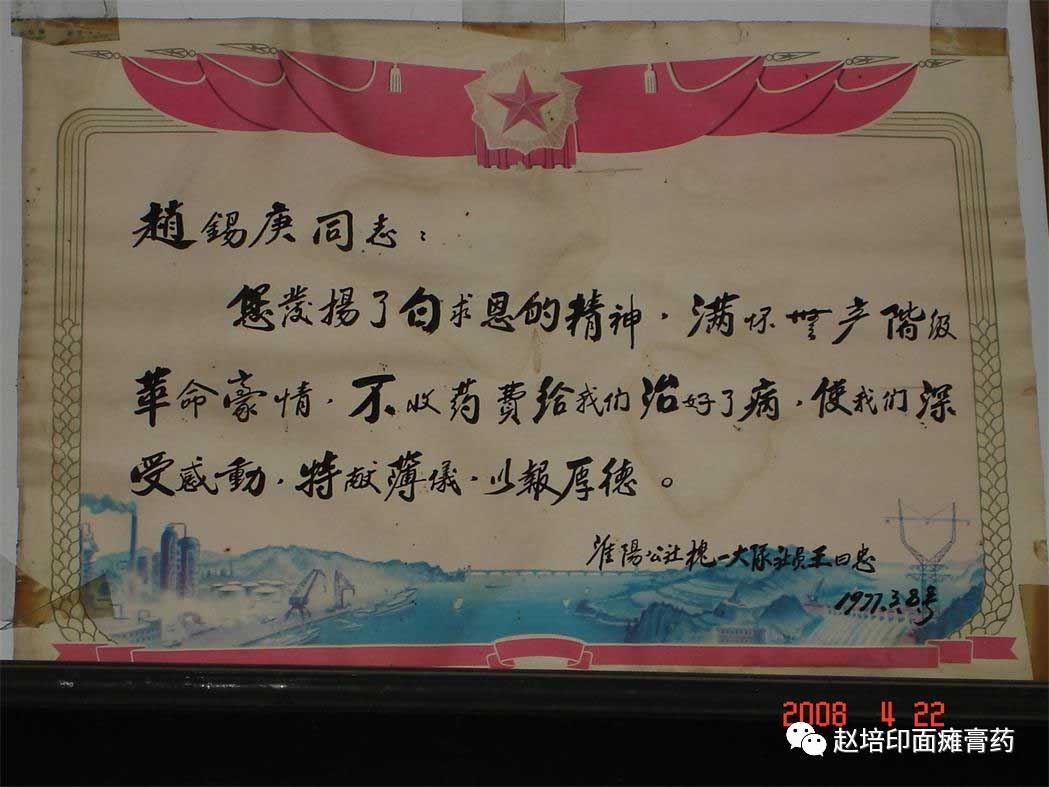 趙錫庚同志：
您发揚了白求恩的精神，满怀無产階级
革命豪情，不收药費给我们治好了病，使我们深
受感動，特献薄儀，以報厚德。
淮陽公社槐一大队社员王曰忠
1977.3.8号
2008 4 22
赵培印面瘫膏药